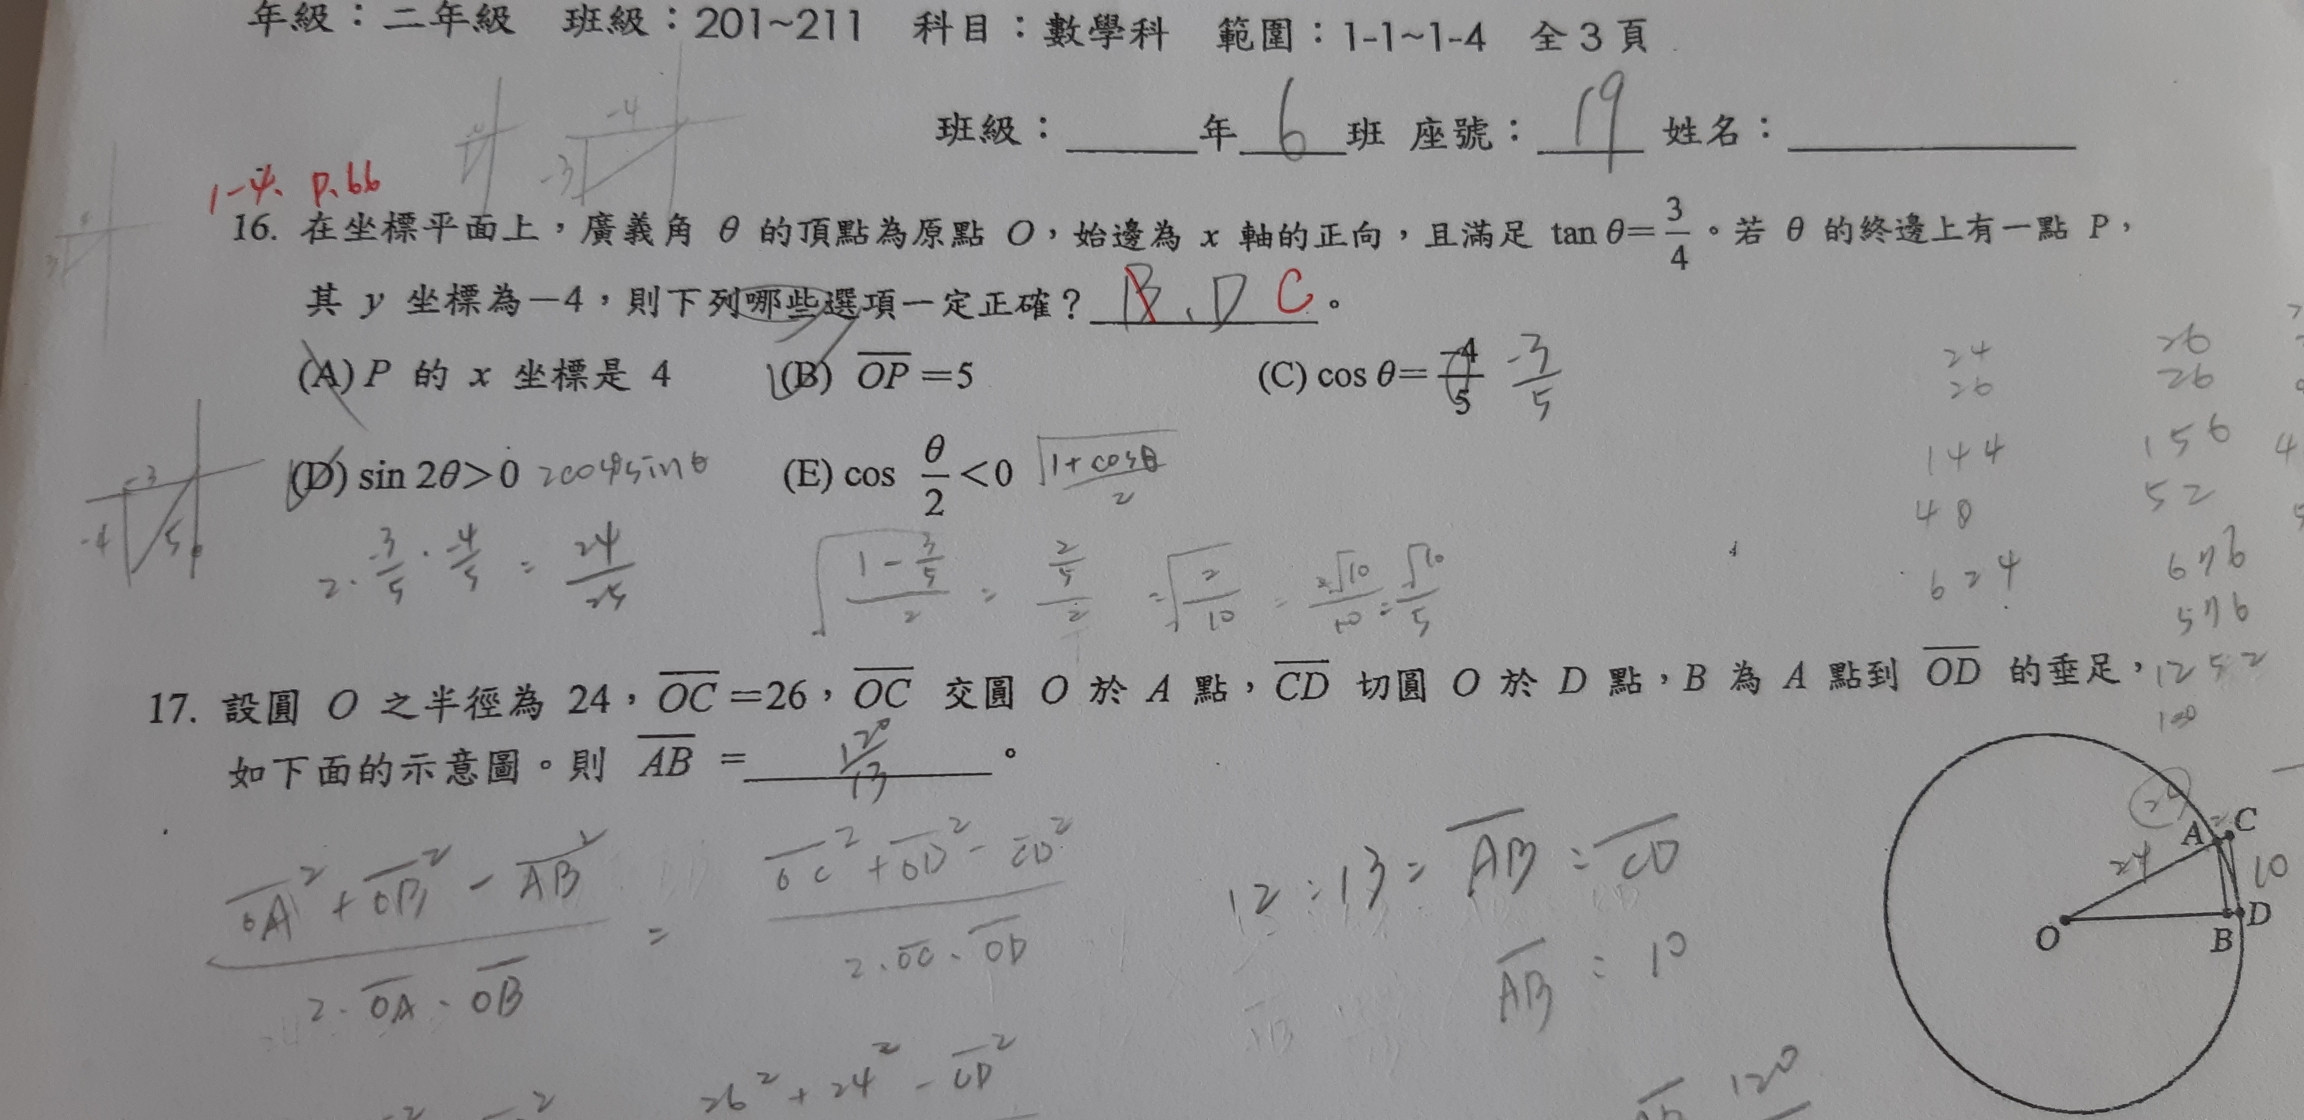 年級：二年級 班級：201~211 科目：數學科 範圍：1-1~1-4 全3頁
班級：______年 6 班 座號： 19 姓名：______________
-4
-3
1-4. P.66
16. 在坐標平面上，廣義角 θ 的頂點為原點 O，始邊為 x 軸的正向，且滿足 tan θ=3/4。若 θ 的終邊上有一點 P，
其 y 坐標為－4，則下列哪些選項一定正確？ B、D C 。
(A) P 的 x 坐標是 4 (B) OP=5 (C) cos θ=-4/5 -3/5
(D) sin 2θ>0 2cosθsinθ (E) cos θ/2<0 √(1+cosθ)/2
-3
-4 5
2·-3/5·-4/5=24/25 √(1-3/5)/2 = 2/5/2 =√2/10 = 2√10/10=√10/5
24 26
26 26
144 156
48 52
624 676
576
1252
100
17. 設圓 O 之半徑為 24，OC=26，OC 交圓 O 於 A 點，CD 切圓 O 於 D 點，B 為 A 點到 OD 的垂足，
如下面的示意圖。則 AB = 120/13 。
OA²+OB²-AB²/2·OA·OB = OC²+OD²-CD²/2·OC·OD
12:13=AB:CD
AB:10
26²+24²-CD²
120
24
A C
24 10
O B D